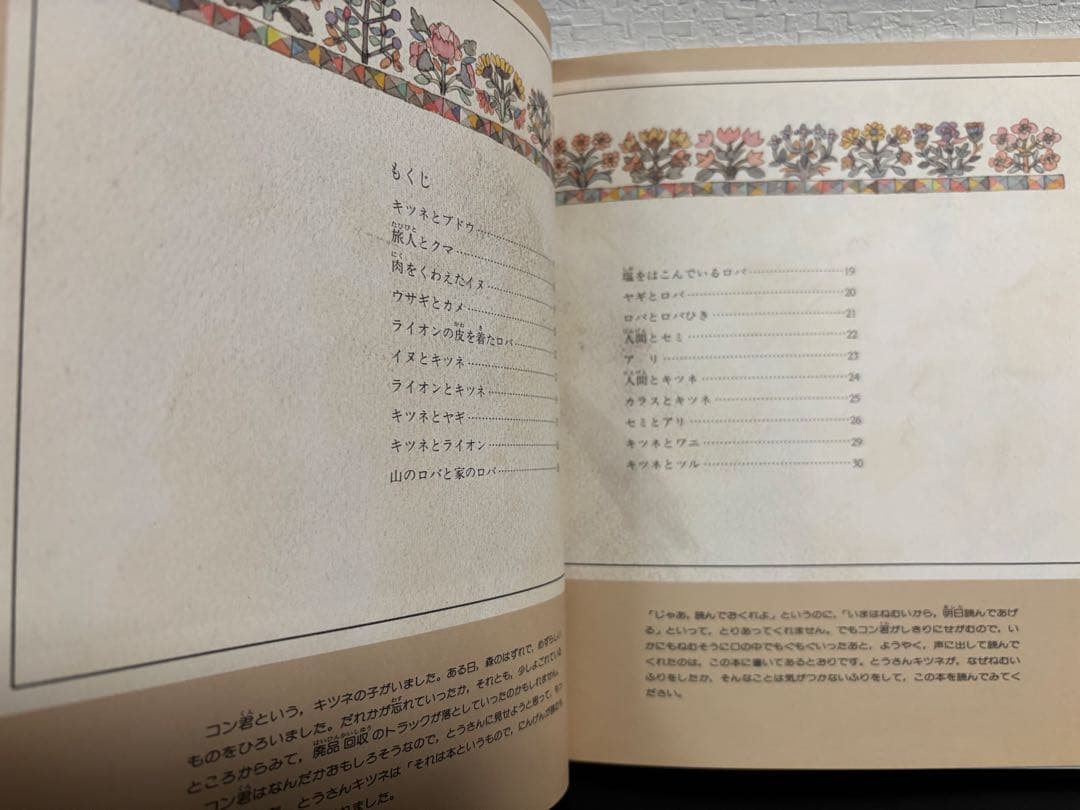 もくじ
キツネとブドウ
旅人とクマ
肉をくわえたイヌ
ウサギとカメ
ライオンの皮を着たロバ
イヌとキツネ
ライオンとキツネ
キツネとヤギ
キツネとライオン
山のロバと家のロバ
コン君という，キツネの子がいました。ある日，森のはずれで，めずらしい
ものをひろいました。だれかが忘れていったか，それとも，少しよごれている
ところからみて，廃品回収のトラックが落としていったのかもしれません。
コン君はなんだかおもしろそうなので，とうさんに見せようと思って，
とうさんキツネは「それは本というもので，にんげんが
塩をはこんでいるロバ 19
ヤギとロバ 20
ロバとロバひき 21
人間とセミ 22
アリ 23
人間とキツネ 24
カラスとキツネ 25
セミとアリ 26
キツネとワニ 29
キツネとツル 30
「じゃあ，読んでおくれよ」というのに，「いまはねむいから，明日読んであげ
る」といって，とりあってくれません。でもコン君がしきりにせがむので，い
かにもねむそうに口の中でもぐもぐいったあと，ようやく，声に出して読んで
くれたのは，この本に書いてあるとおりです。とうさんキツネが，なぜねむい
ふりをしたか，そんなことは気がつかないふりをして，この本を読んでみてく
ださい。